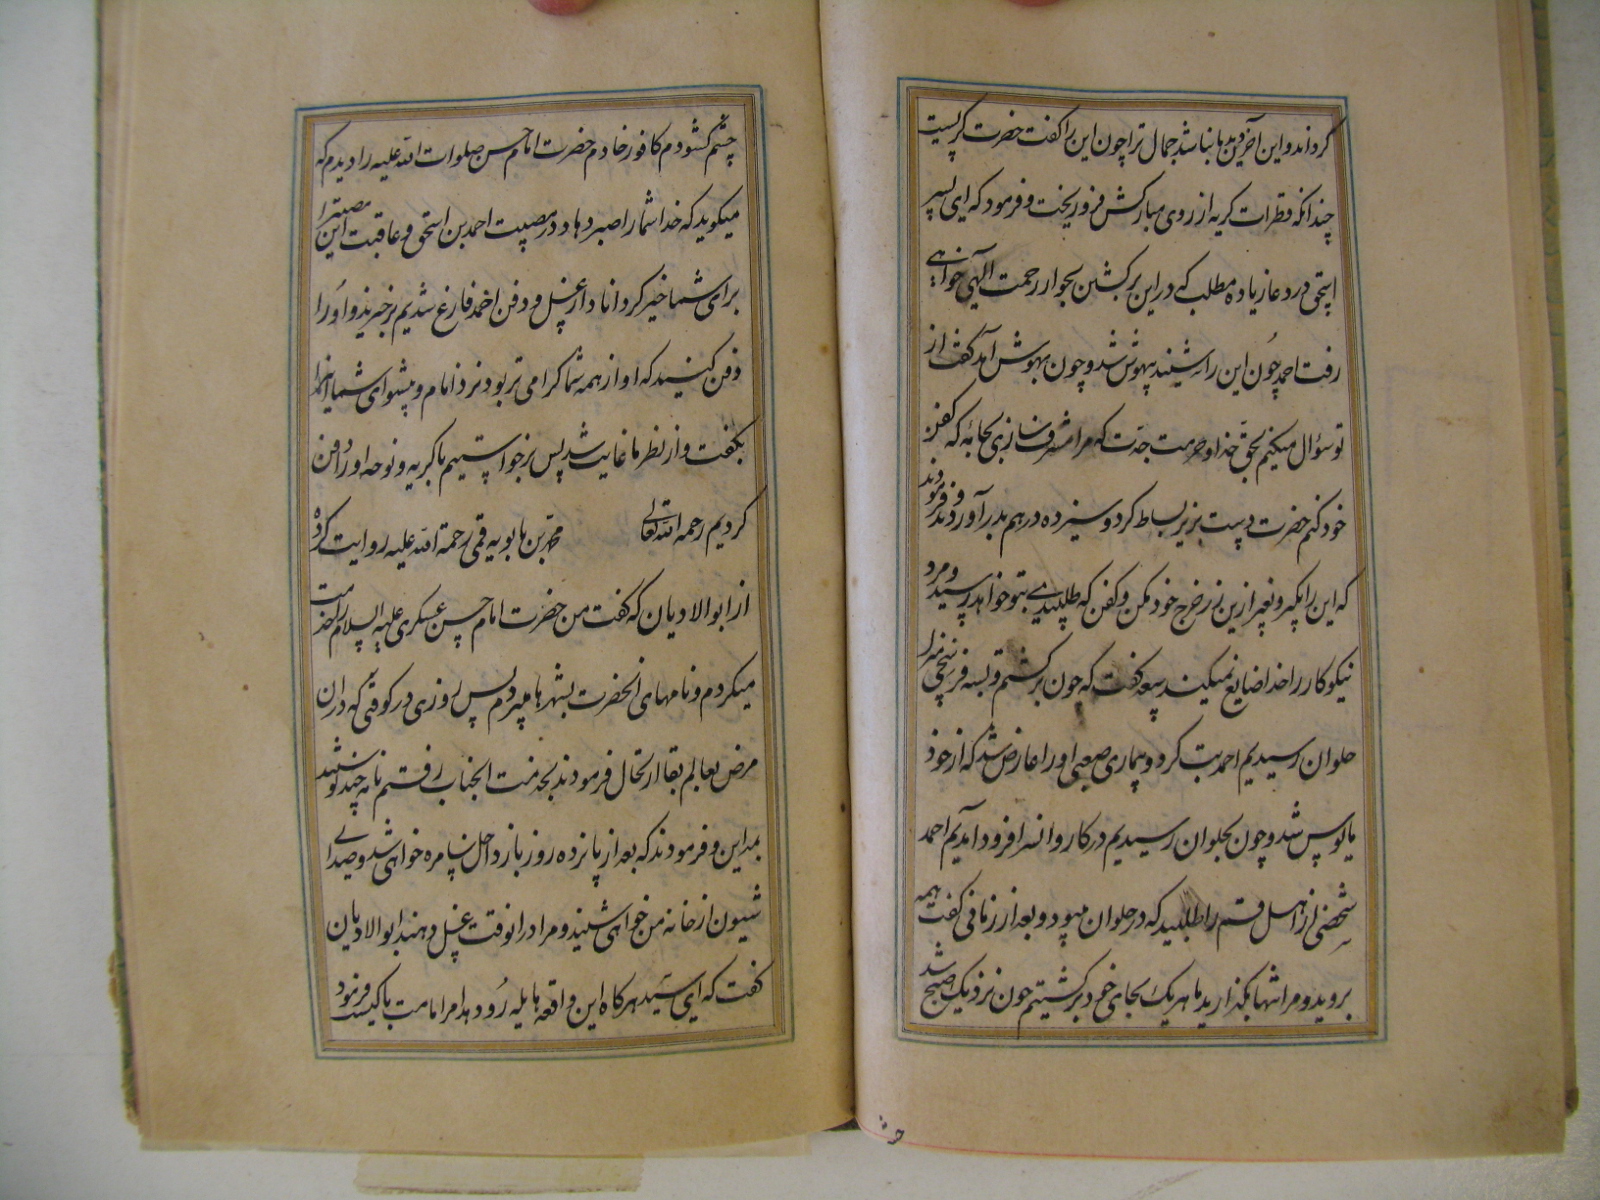 گرداند و این آخرین دیدنها نباشد جمال ترا چون این را گفت حضرت گریست
چندانکه قطرات گریه از روی مبارکش فرو ریخت و فرمود که ای پسر
اسحق در دعا زیاده مطلب که در این برگشتن بجوار رحمت الهی خواهی
رفت احمد چون این را شنید بیهوش شد و چون بهوش آمد گفت از
تو سؤال میکنم بحق خدا و حرمت جدت که مرا مشرف سازی بجامهٔ که کفن
خود کنم حضرت دست بزیر بساط کرد و سیزده درهم بدر آورد و فرمودند
که این را بگیر و بغیر ازین زر خرج خود مکن و کفن که طلبیدی بتو خواهد رسید و مزد
نیکوکار را خدا ضایع نمیکند سعد گفت که چون برگشتم و بسه فرسخی منزل
حلوان رسیدیم احمد تب کرد و بیماری صعبی او را عارض شد که از خود
مایوس شد و چون بحلوان رسیدیم در کاروانسرا فرود آمدیم احمد
شخصی از اهل قم را طلبید که در حلوان میبود و بعد از زمانی گفت همه
بروید و مرا تنها بگذارید ما هر یک بجای خود برگشتیم چون نزدیک صبح شد
چشم گشودم کافور خادم حضرت امام حسن صلوات الله علیه را دیدم که
میگوید که خدا شما را صبر دهاد در مصیبت احمد بن اسحق و عاقبت این مصیبت را
برای شما خیر گرداناد از غسل و دفن احمد فارغ شدیم برخیزید و او را
دفن کنید که او از همه شما گرامی تر بود نزد امام و پیشوای شما اینرا
بگفت و از نظر ما غایب شد پس برخواستیم با گریه و نوحه او را دفن
کردیم رحمه الله تعالی محمد بن بابویه قمی رحمة الله علیه روایت کرده
از ابوالادیان که گفت من حضرت امام حسن عسکری علیه السلام را خدمت
میکردم و نامهای انحضرت بشهرها میبردم پس روزی در کوفتی که در ان
مرض بعالم بقا ارتحال فرمودند بخدمت انجناب رفتم نامه چند نوشتند
بمداین و فرمودند که بعد از پانزده روز باز داخل سامره خواهی شد و صدای
شیون از خانه من خواهی شنید و مرا در انوقت غسل دهند ابوالادیان
گفت که ای سید هرگاه این واقعه هایله رو دهد امر امامت با کیست فرمود